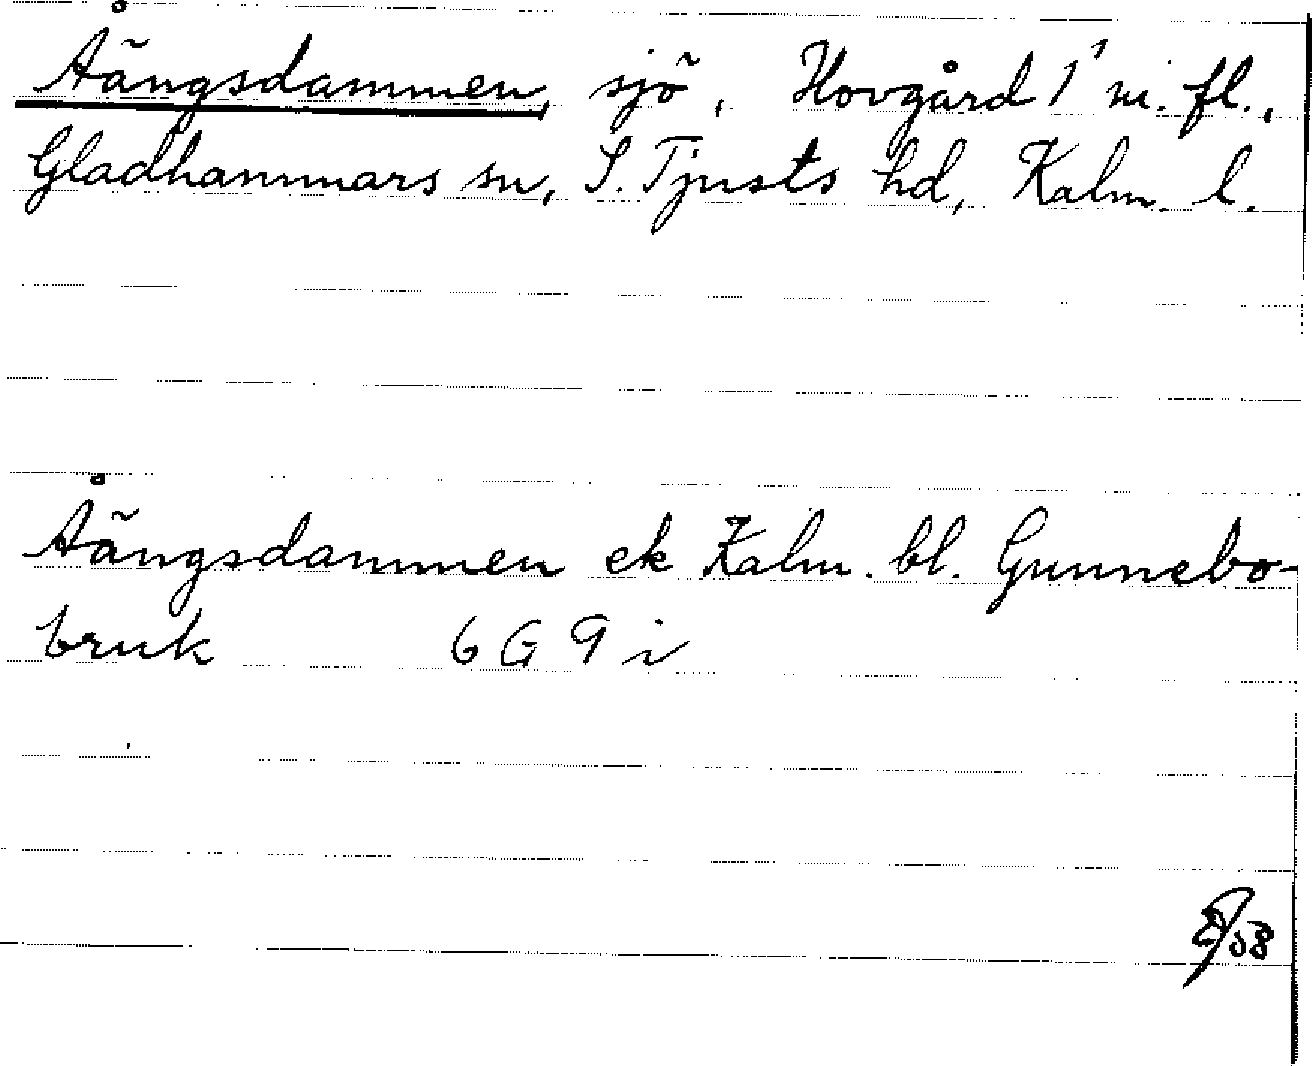 Åängsdammen, sjö, Hovgård 1¹ m. fl.,
Gladhammars sn, S. Tjusts hd, Kalm. l.
Åängsdammen ek Kalm. bl. Gunnebo-
bruk 6 G 9 i